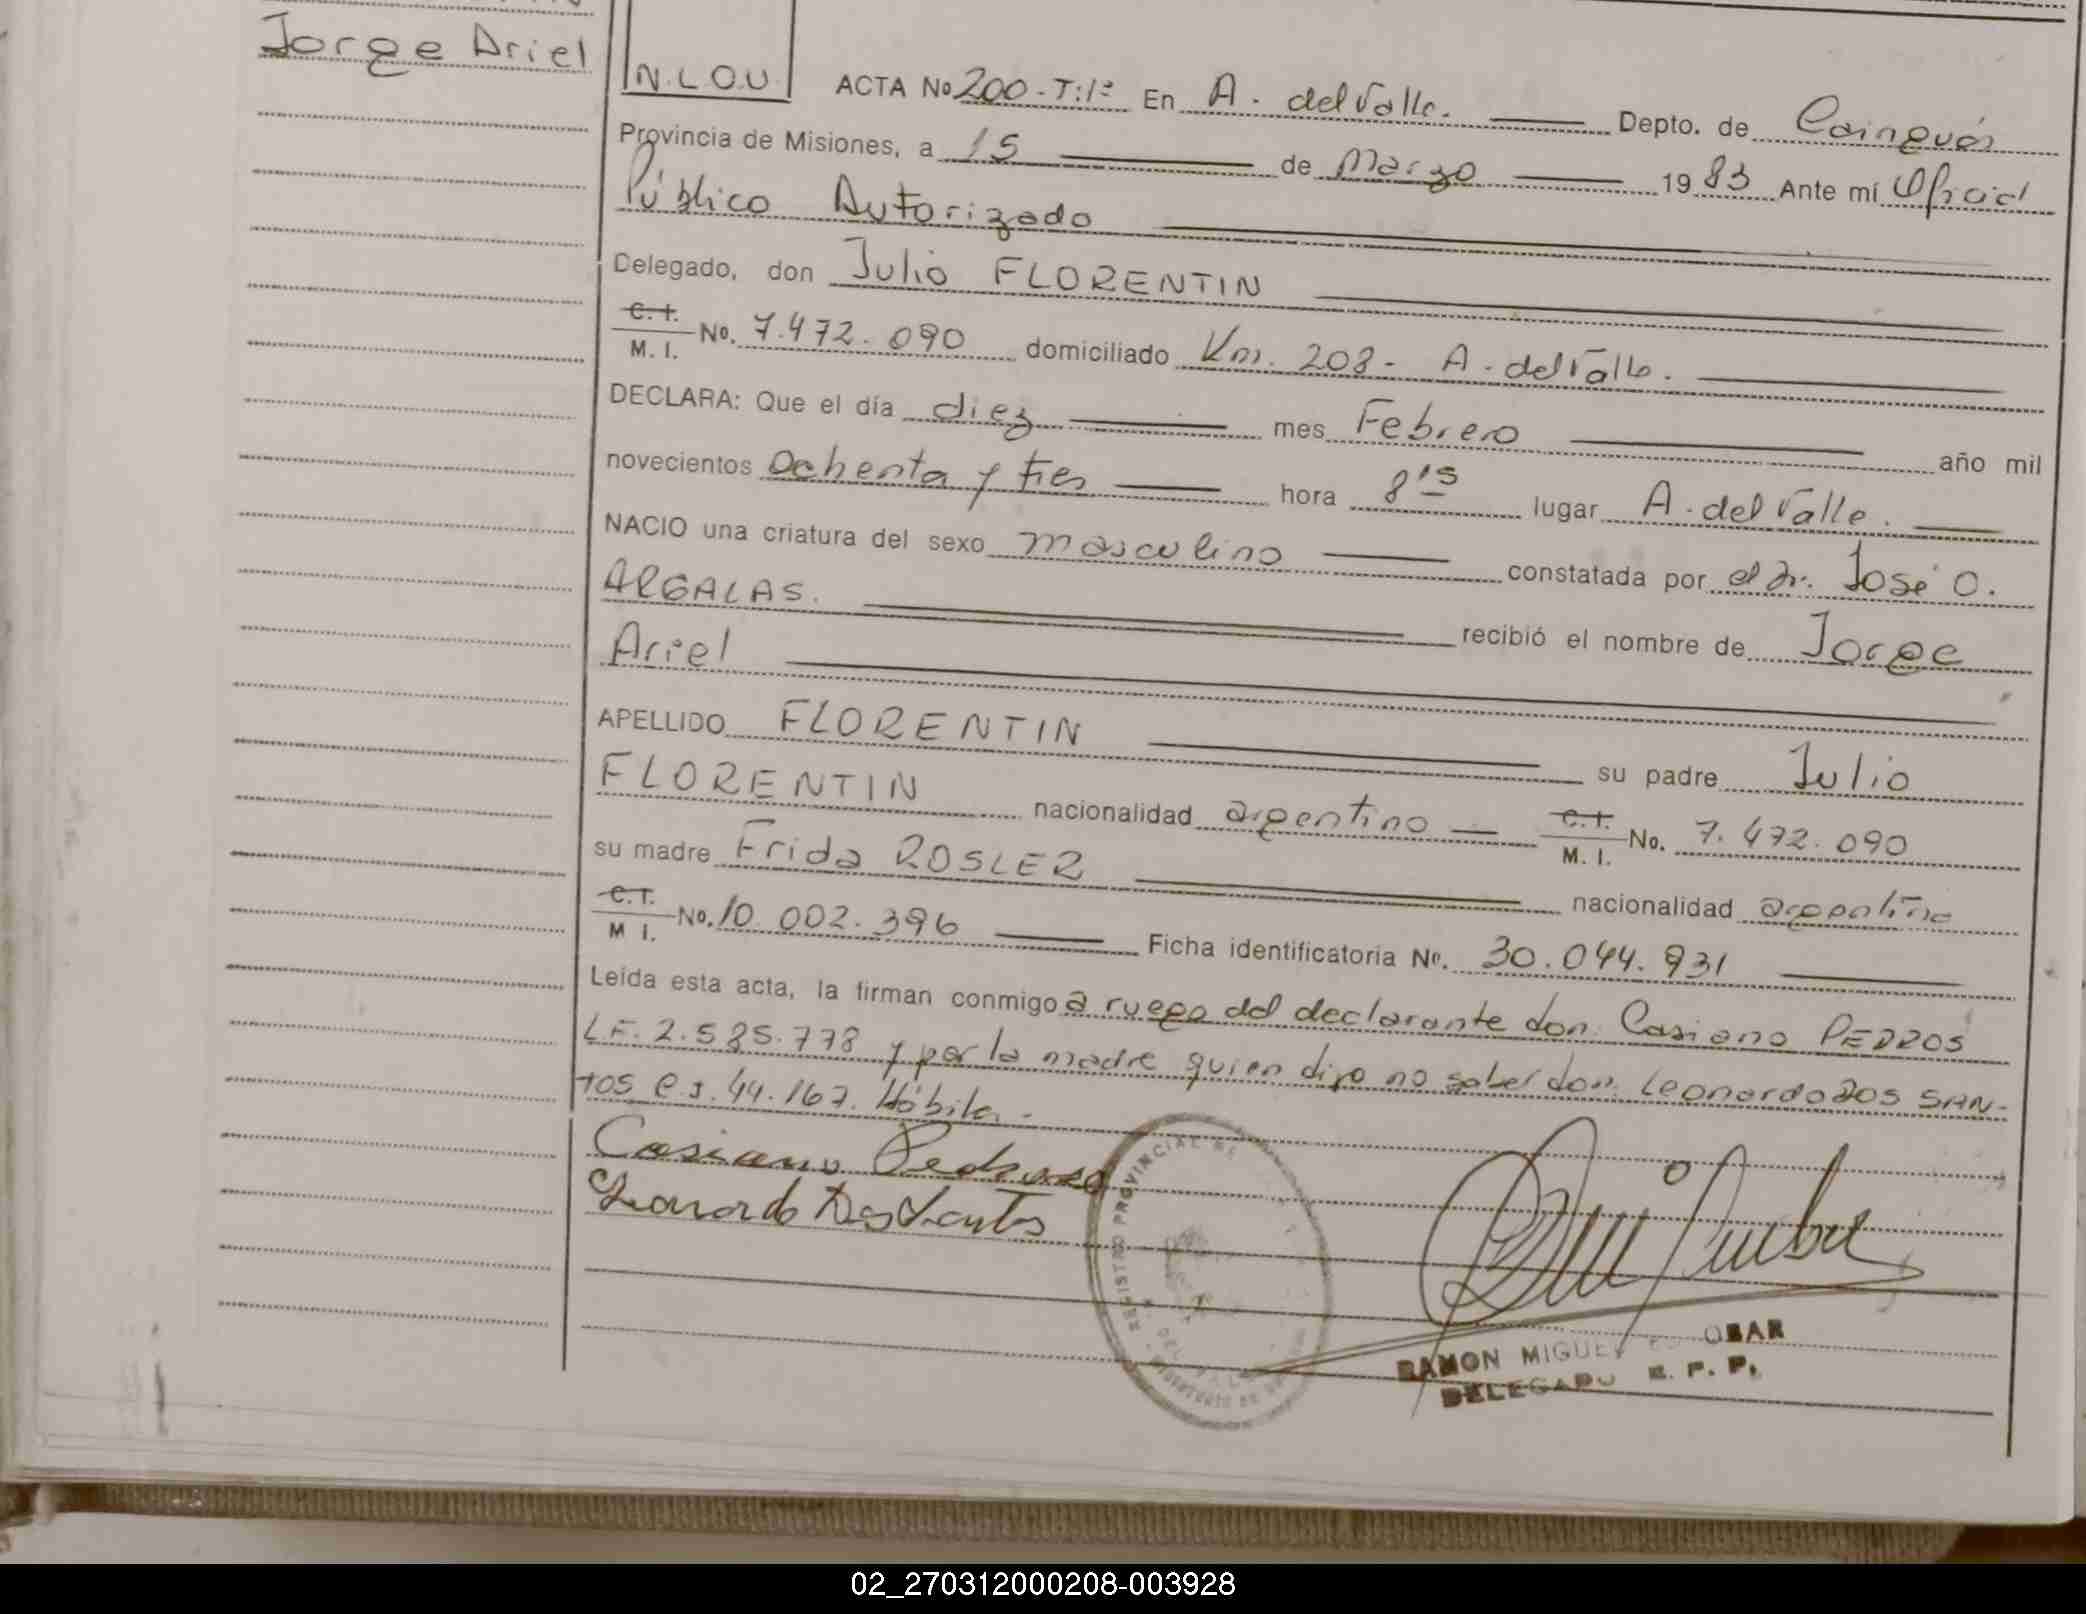 Jorge Ariel
N.L.O.U
ACTA No 200-T:1º En A. del Valle. Depto. de Cainguás
Provincia de Misiones, a 15 de Marzo 1983 Ante mí Oficial
Público Autorizado
Delegado, don Julio FLORENTIN
C.I. M.I. No. 7.472.090 domiciliado Km. 208- A. del Valle.
DECLARA: Que el día diez mes Febrero año mil
novecientos Ochenta y tres hora 8 15 lugar A. del Valle.
NACIO una criatura del sexo masculino constatada por el Dr. José O.
ARGALAS. recibió el nombre de Jorge
Ariel
APELLIDO FLORENTIN su padre Julio
FLORENTIN nacionalidad argentino C.I. M.I. No. 7.472.090
su madre Frida ROSLER nacionalidad argentina
C.I. M I. No. 10.002.396 Ficha identificatoria Nº. 30.044.931
Leída esta acta, la firman conmigo a ruego del declarante don Casiano PEDROS
L.E. 2.585.778 y por la madre quien dijo no saber don Leonardo DOS SAN-
TOS C.I. 44.167. Hábiles.-
Casiano Pedroso
Leonardo Dos Santos
REGISTRO PROVINCIAL DE
RAMON MIGUEL ES OBAR
DELEGADO R. P. P.
02_270312000208-003928